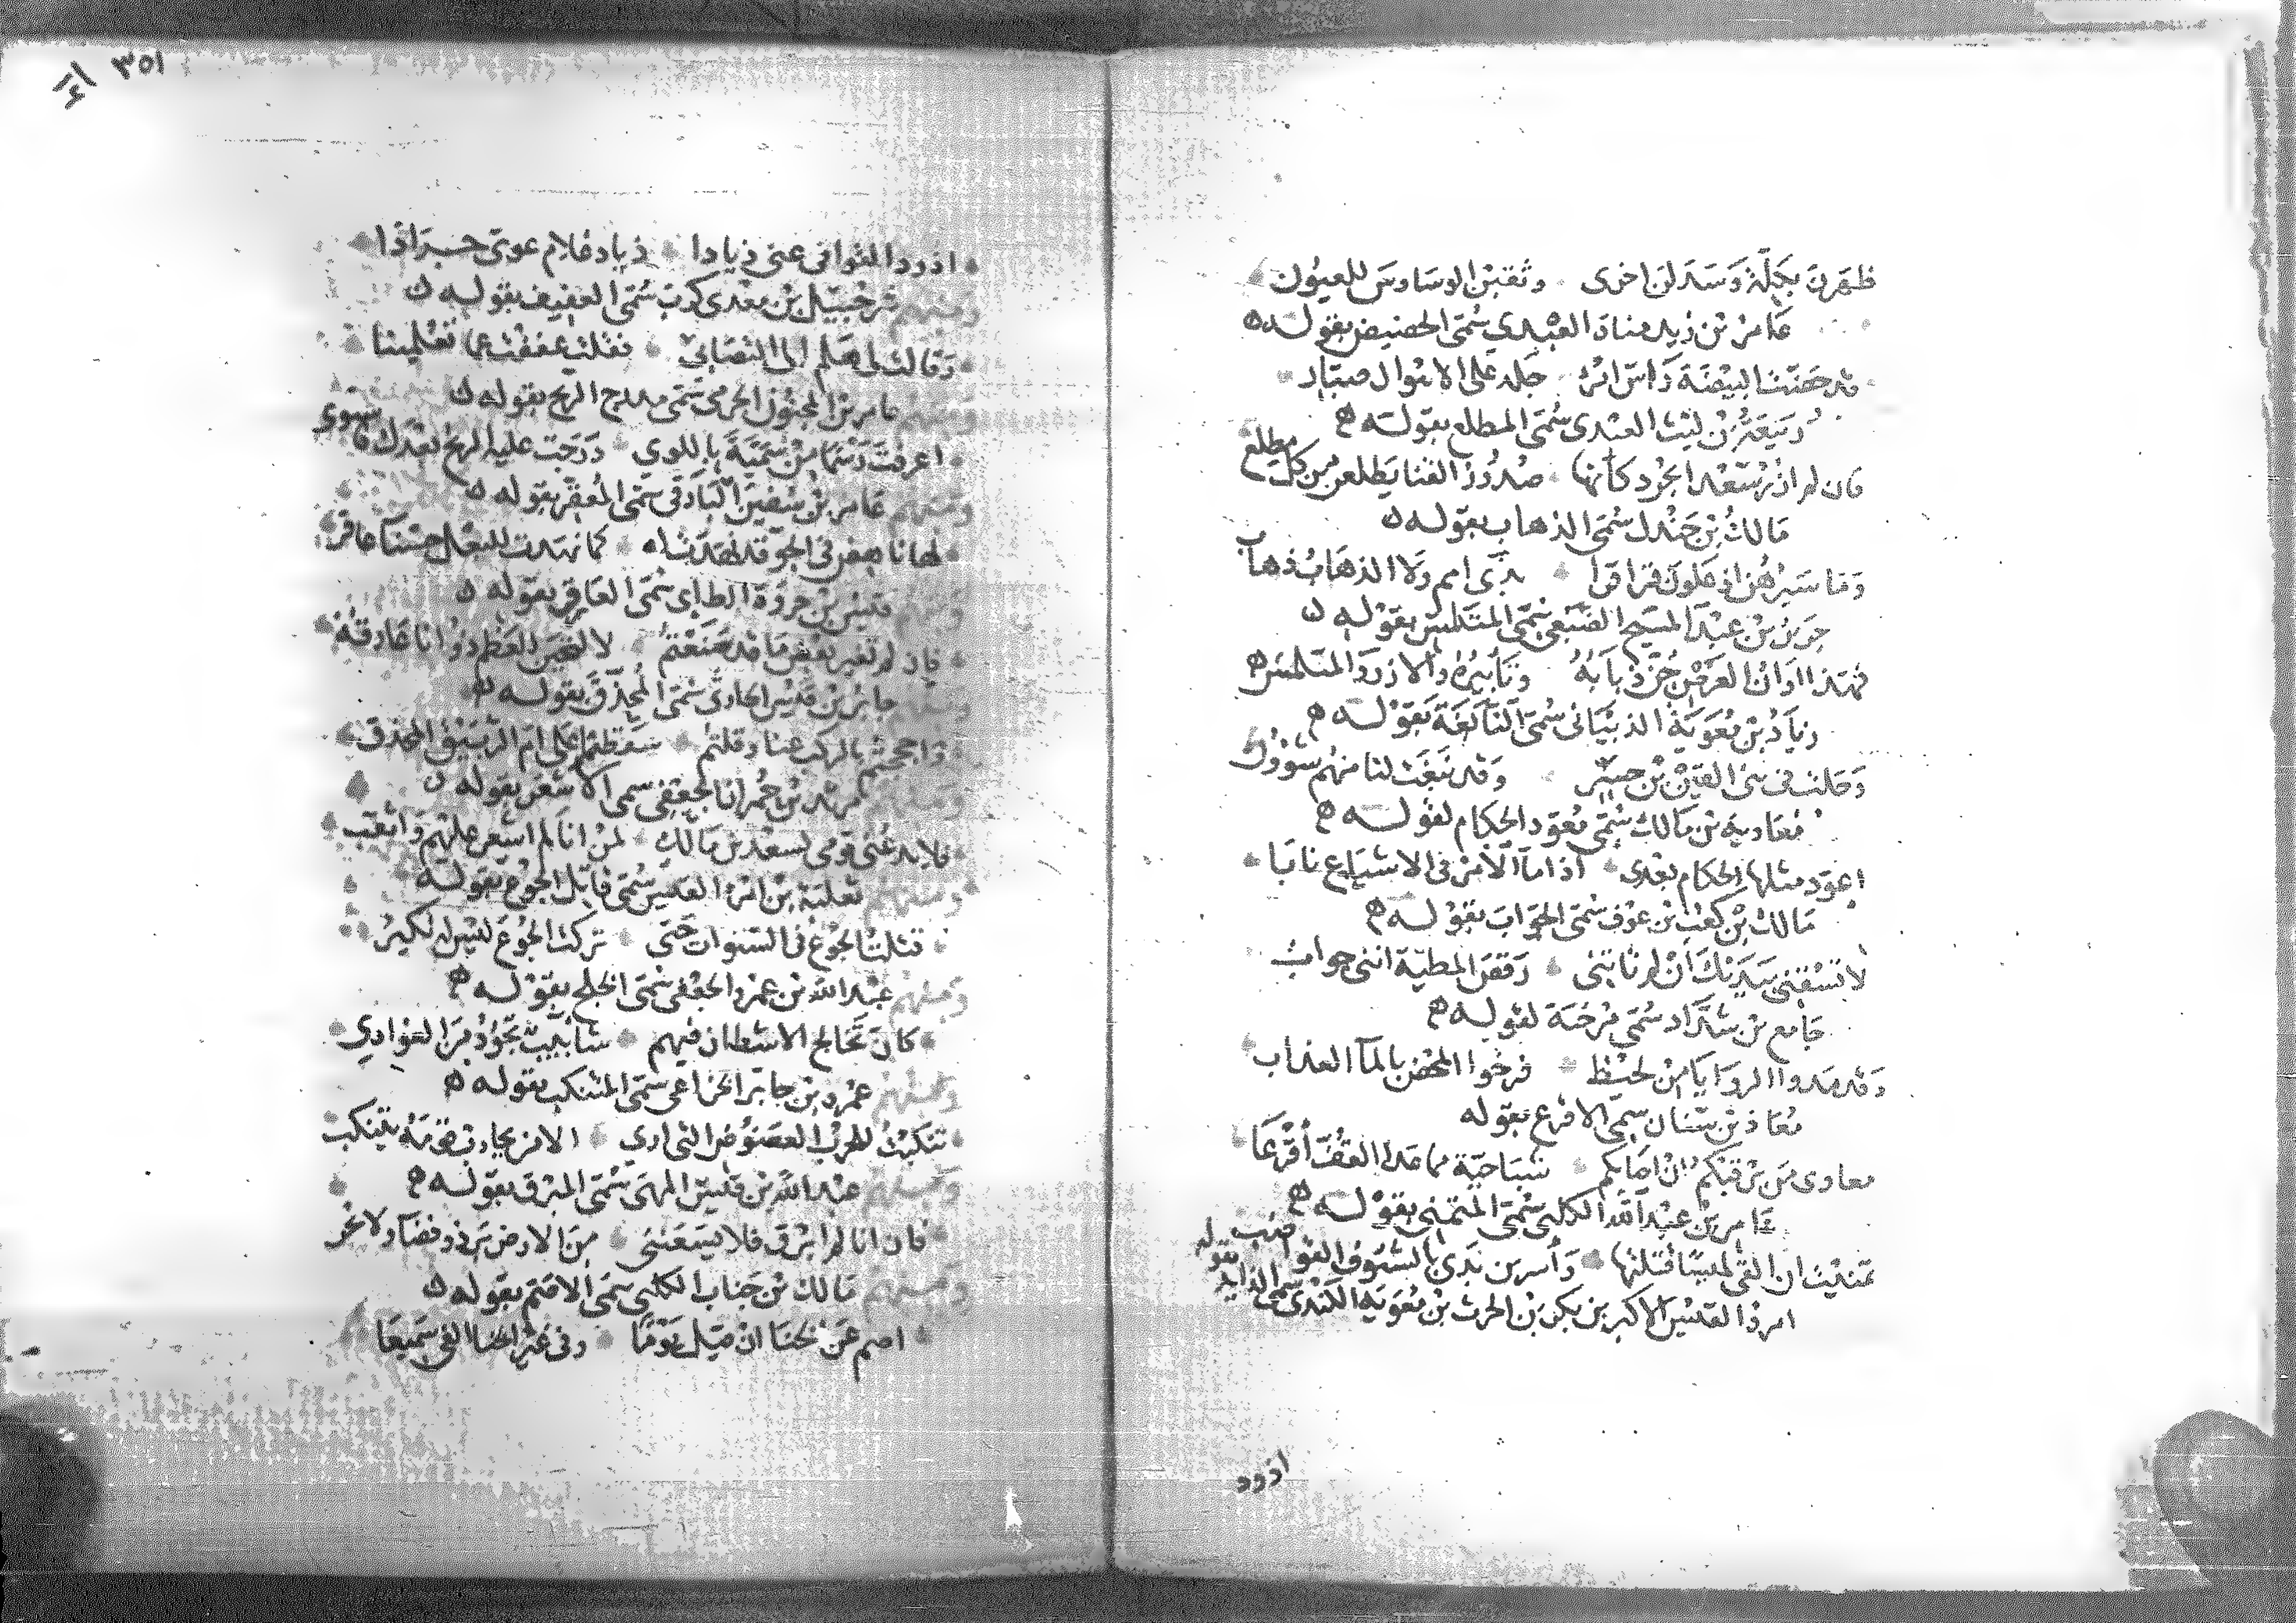 ظهرن بكلة وسدلن اخرى وثقبن الوساوس للعيون
عامر بن زيد مناة العبدي سمى الحضيض بقوله
قد حضت البيضة راس امرئ جلد على الاهوال صبار
ربيعة بن ليث العبدى سمى المطلع بقوله
فان لم ازر سعدا بجرد كانها صدور القنا يطلعن من كل مطلع
مالك بن جندل سمى الذهاب بقوله
وما سيرهن اذ علون قراقرا بذى امم ولا الذهاب ذهاب
جرير بن عبد المسيح الضبعى سمى المتلمس بقوله
فهذا اوان العرض حى ذبابه زنابيره والازرق المتلمس
زياد بن معوية الذبيانى سمى النابغة بقوله
وحلت فى بنى القين بن جسر وقد نبغت لنا منهم شؤون
معاوية بن مالك سمى معود الحكام لقوله
اعود مثلها الحكام بعدى اذا ما الامر فى الاشياع نابا
مالك بن كعب بن عوف سمى الجواب بقوله
لا تسقنى بيديك ان لم تاتنى رقص المطية اننى جواب
جامع بن شداد سمى مرخية لقوله
وقد مدوا الروايا من لحيظ فرخوا المحض بالمآ العذاب
معاذ بن سنان سمى الاقرع بقوله
معاوى من يرقيكم ان اصابكم شباحية مما عدا القف اقرعا
عامر بن عبد الله الكلبى سمى المتمنى بقوله
تمنيت ان القى لميسا فتلنها واسر بن ندى بالسيوف القواضب
امرؤ القيس الاكبر بن بكر بن الحرث بن معوية الكندى سمى الذايد بقوله
اذود
٣٥١
اذود القوافى عنى ذيادا ذياد غلام غوى جرادا
ومنهم شرحبيل بن معدى كرب سمى العفيف بقوله
وقالت لى هلم الى التصابى فقلت عففت عما تعلمينا
ومنهم عامر بن المجنون الجرمى سمى مدرج الريح بقوله
اعرفت رسما من سمية باللوى درجت عليه الريح بعدك فاستوى
ومنهم عامر بن سفين البارقى سمى المعقر بقوله
لها ناهض فى الجو قد مهدت له كما نهدت للبعل حسنا عاقر
ومنهم قيس بن جروة الطاى سمى العارق بقوله
فان لم تغير بعض ما قد صنعتم لانتحين للعظم ذو انا عارقه
ومنهم جابر بن قيس الحارثى سمى المحذق بقوله
ومنهم مرثد بن حمران الجعفى سمى الاسعر بقوله
فلا يدعنى قومى لسعد بن مالك لئن انا لم اسعر عليهم واثقب
ومنهم ثعلبة بن امرئ القيس سمى قاتل الجوع بقوله
قتلت الجوع فى السنوات حتى تركت الجوع ليس له نكير
ومنهم عبد الله بن عمرو الجعفى سمى الخلج بقوله
كان تخالج الاشطان فيهم شابيب تجود من الغوادى
ومنهم عمرو بن جابر الخزاعى سمى المتنكب بقوله
تنكبت للحرب العضوض التى ارى الا من يحارب قومه يتنكب
ومنهم عبد الله بن قيس السهمى سمى المبرق بقوله
فان انا لم ابرق فلا يسعننى من الارض بر ذو فضآ ولا بحر
ومنهم مالك بن جناب الكلبى سمى الاصم بقوله
اصم عن الخنا ان قيل يوما وفى غير الخنا الفى سميعا